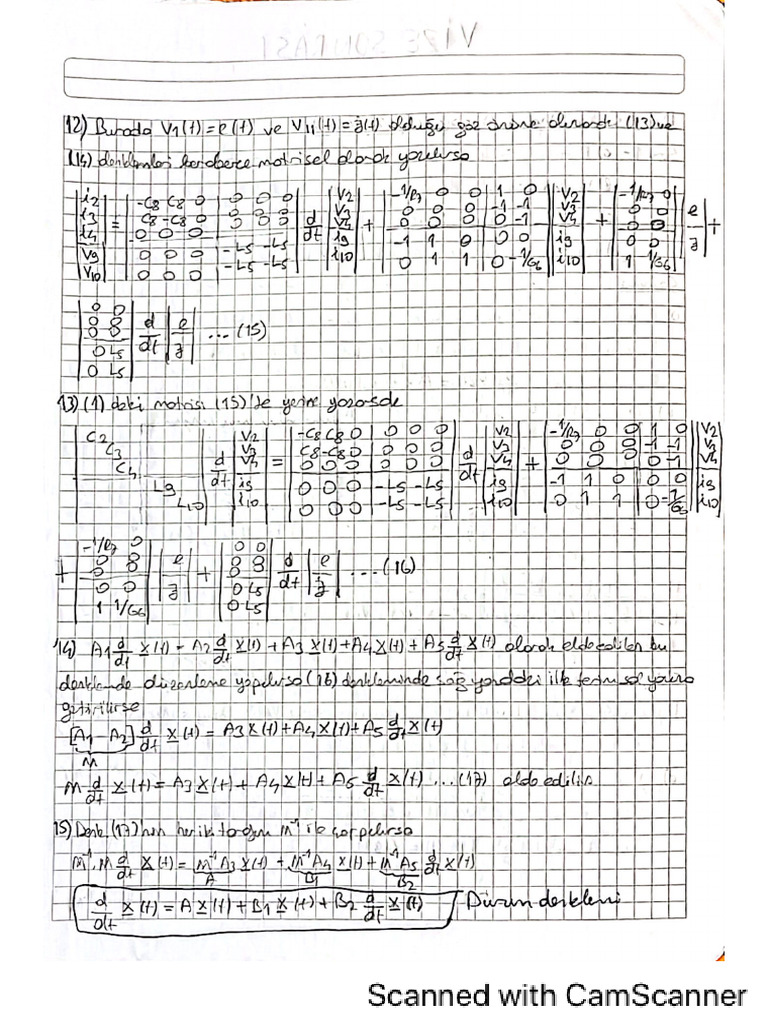 VİZE SONRASI
12) Burada V1(t)=e(t) ve V11(t)=j(t) olduğu göz önüne alınarak (13) ve
(14) denklemleri beraberce matrisel olarak yazılırsa
|i2 i3 i4 V9 V10| = |-C8 C8 0 0 0 0; C8 -C8 0 0 0 0; 0 0 0; 0 0 0 -L5 -L5; 0 0 0 -L5 -L5| d/dt |V2 V3 V4 i9 i10| + |-1/R7 0 0 1 0; 0 0 0 -1 -1; 0 0 0 0 -1; -1 1 0 0 0; 0 1 1 0 -1/G6| |V2 V3 V4 i9 i10| + |-1/R7 0; 0 0; 0 0; 0 0; 1 1/G6| |e j| +
|0 0; 0 0; 0 0; 0 L5; 0 L5| d/dt |e j| ... (15)
13) (1) deki matrisi (15)'de yerine yazarsak
|C2 C3 C4 L9 L10| d/dt |V2 V3 V4 i9 i10| = |-C8 C8 0 0 0 0; C8 -C8 0 0 0 0; 0 0 0 0 0 0; 0 0 0 -L5 -L5; 0 0 0 -L5 -L5| d/dt |V2 V3 V4 i9 i10| + |-1/R7 0 0 1 0; 0 0 0 -1 -1; 0 0 0 0 -1; -1 1 0 0 0; 0 1 1 0 -1/G6| |V2 V3 V4 i9 i10|
+ |-1/R7 0; 0 0; 0 0; 0 0; 1 1/G6| |e j| + |0 0; 0 0; 0 0; 0 L5; 0 L5| d/dt |e j| ... (16)
14) A1 d/dt x(t) = A2 d/dt x(t) + A3 x(t) + A4 x(t) + A5 d/dt x(t) olarak elde edilen bu
denklemde düzenleme yapılırsa (16) denkleminde sağ yandaki ilk terim sol yana
getirilirse
[A1 - A2] d/dt x(t) = A3 x(t) + A4 x(t) + A5 d/dt x(t)
M
M d/dt x(t) = A3 x(t) + A4 x(t) + A5 d/dt x(t) ... (17) elde edilir
15) Denk. (17)'nin her iki tarafını M⁻¹ ile çarpılırsa
M⁻¹.M d/dt x(t) = M⁻¹A3 x(t) + M⁻¹A4 x(t) + M⁻¹A5 d/dt x(t)
A B1 B2
d/dt x(t) = A x(t) + B1 x(t) + B2 d/dt x(t) Durum denklemi
Scanned with CamScanner